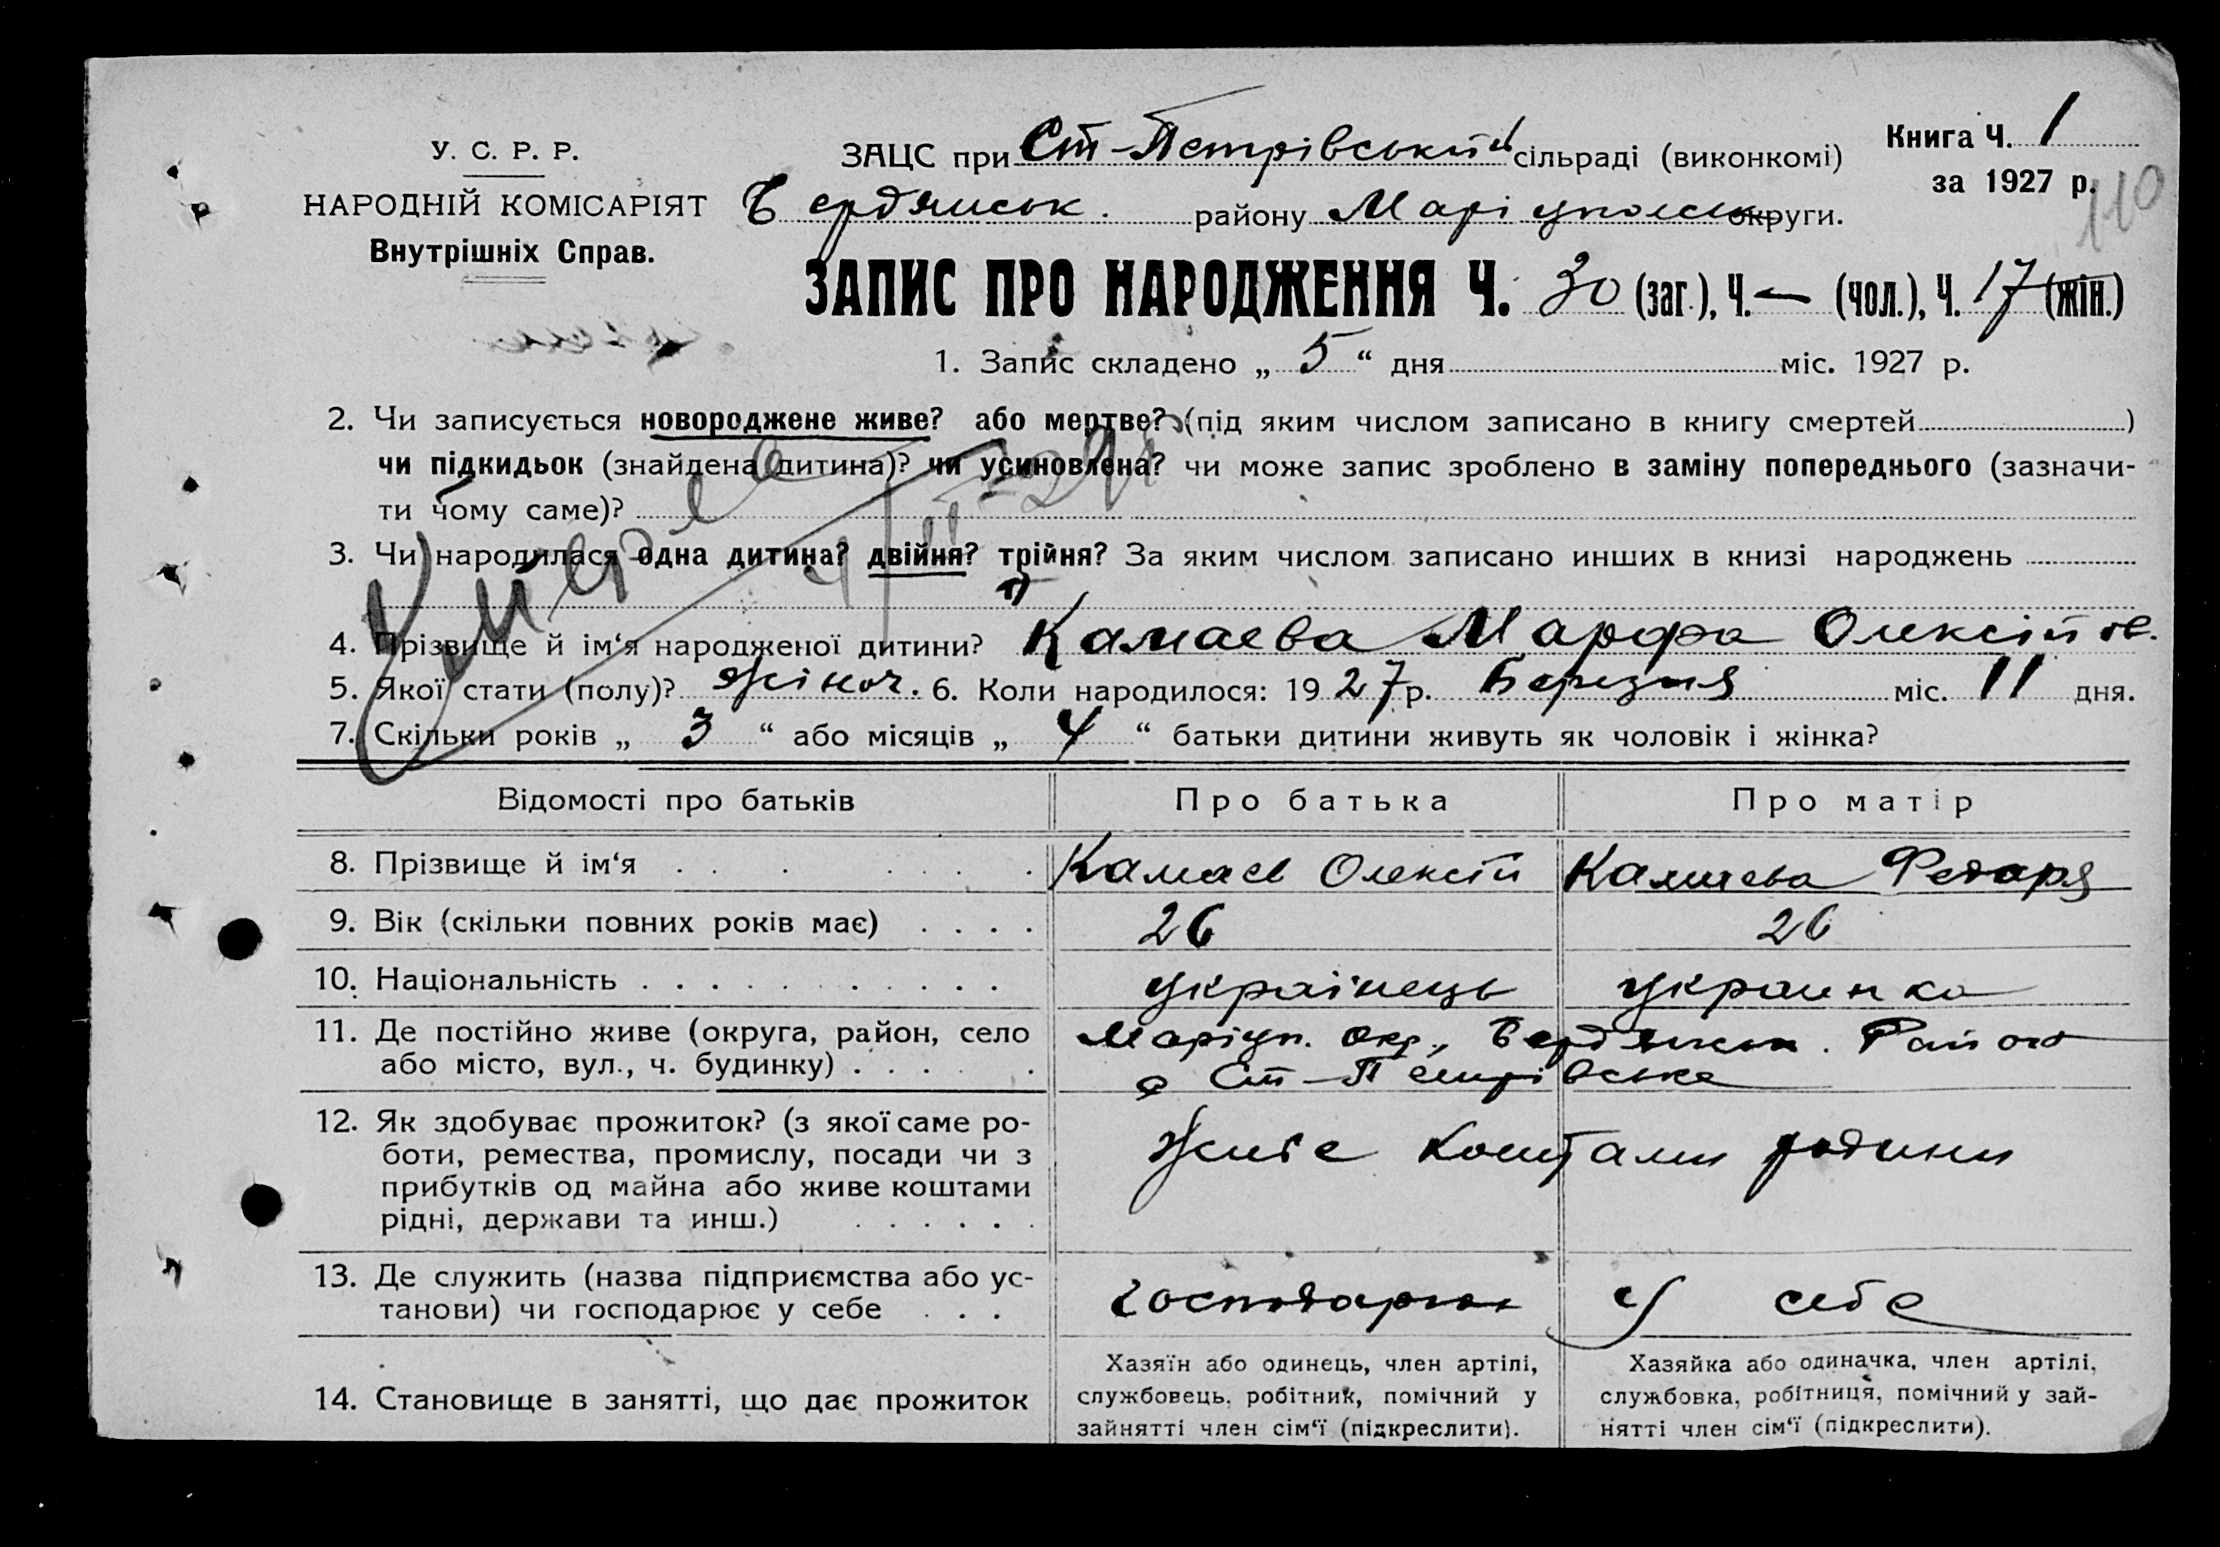 У. С. Р. Р.
НАРОДНІЙ КОМІСАРІЯТ
Внутрішніх Справ.
ЗАЦС при Ст-Петрівській сільраді (виконкомі)
Бердянськ. району Маріупольськ округи.
Книга Ч. 1
за 1927 р.
110
ЗАПИС ПРО НАРОДЖЕННЯ Ч. 30 (заг.), Ч. — (чол.), Ч. 17 (жін.)
1. Запис складено „ 5 “ дня міс. 1927 р.
2. Чи записується новороджене живе? або мертве? (під яким числом записано в книгу смертей )
чи підкидьок (знайдена дитина)? чи усиновлена? чи може запис зроблено в заміну попереднього (зазначи-
ти чому саме)?
3. Чи народилася одна дитина? двійня? трійня? За яким числом записано инших в книзі народжень
4. Прізвище й ім‘я народженої дитини? Камаева Марфа Олексіїв.
5. Якої стати (полу)? жіноч. 6. Коли народилося: 1927 р. Березня міс. 11 дня.
7. Скільки років „ 3 “ або місяців „ 4 “ батьки дитини живуть як чоловік і жінка?
Відомості про батьків Про батька Про матір
8. Прізвище й ім‘я Камаев Олексій Камаева Федора
9. Вік (скільки повних років має) 26 26
10. Національність українець украинка
11. Де постійно живе (округа, район, село Маріуп. окр., Бердянськ. Район
або місто, вул., ч. будинку) с Ст-Петрівська
12. Як здобуває прожиток? (з якої саме ро-
боти, ремества, промислу, посади чи з Живе коштами родини
прибутків од майна або живе коштами
рідні, держави та инш.)
13. Де служить (назва підприємства або ус-
танови) чи господарює у себе господарює у себе
14. Становище в занятті, що дає прожиток
Хазяїн або одинець, член артілі,
службовець, робітник, помічний у
зайнятті член сім‘ї (підкреслити).
Хазяйка або одиначка, член артілі,
службовка, робітниця, помічний у зай-
нятті член сім‘ї (підкреслити).